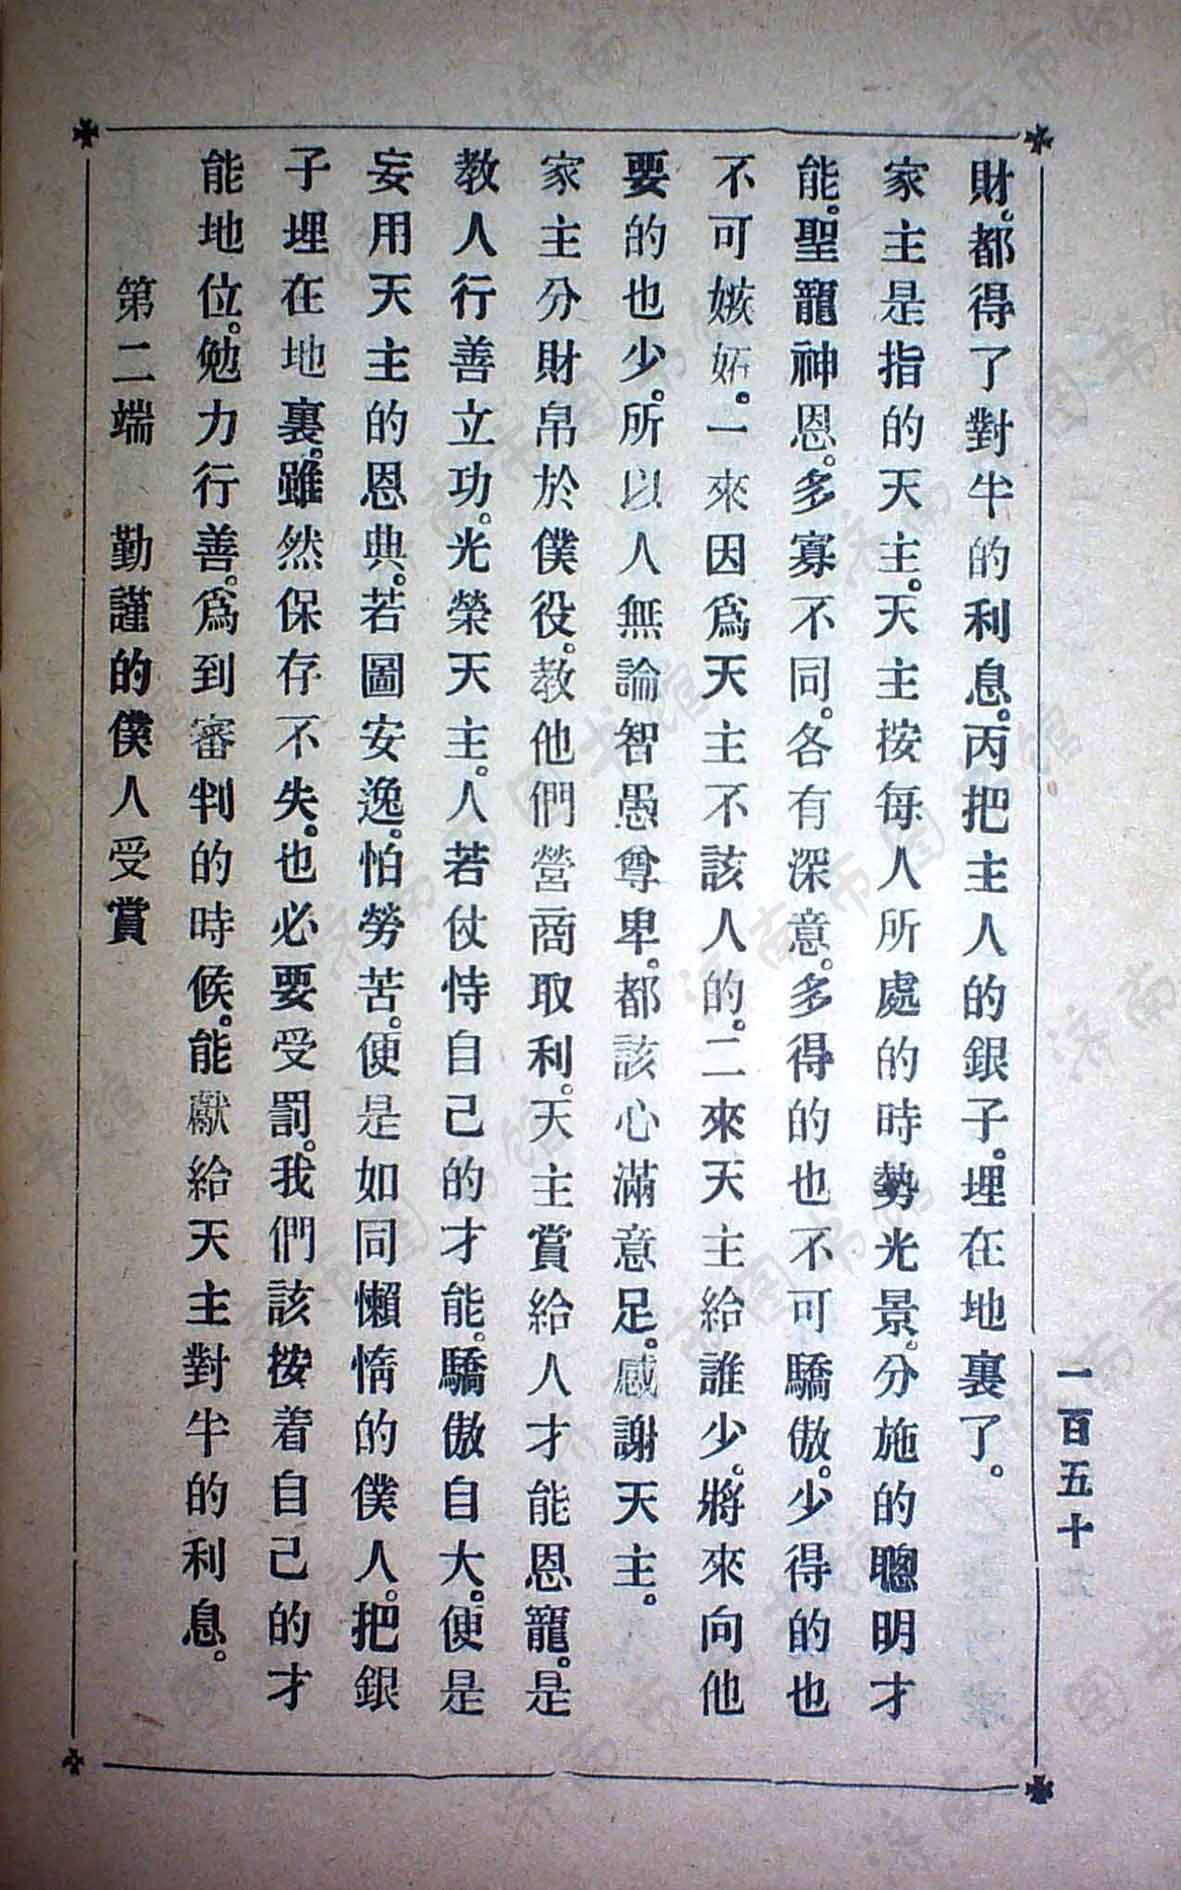 財。都得了對半的利息。丙把主人的銀子。埋在地裏了。
家主是指的天主。天主按每人所處的時勢光景。分施的聰明才
能。聖寵神恩。多寡不同。各有深意。多得的也不可驕傲。少得的也
不可嫉妬。一來因爲天主不該人的。二來天主給誰少。將來向他
要的也少。所以人無論智愚尊卑。都該心滿意足。感謝天主。
家主分財帛於僕役。教他們營商取利。天主賞給人才能恩寵。是
教人行善立功。光榮天主。人若仗恃自己的才能。驕傲自大。便是
妄用天主的恩典。若圖安逸。怕勞苦。便是如同懶惰的僕人。把銀
子埋在地裏。雖然保存不失。也必要受罰。我們該按着自己的才
能地位。勉力行善。爲到審判的時候。能獻給天主對半的利息。
第二端　勤謹的僕人受賞
一百五十
濟南市图书馆